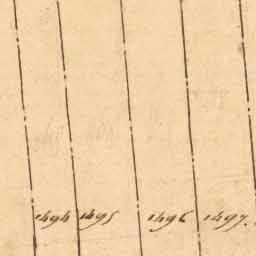 1494 1495 1496 1497.